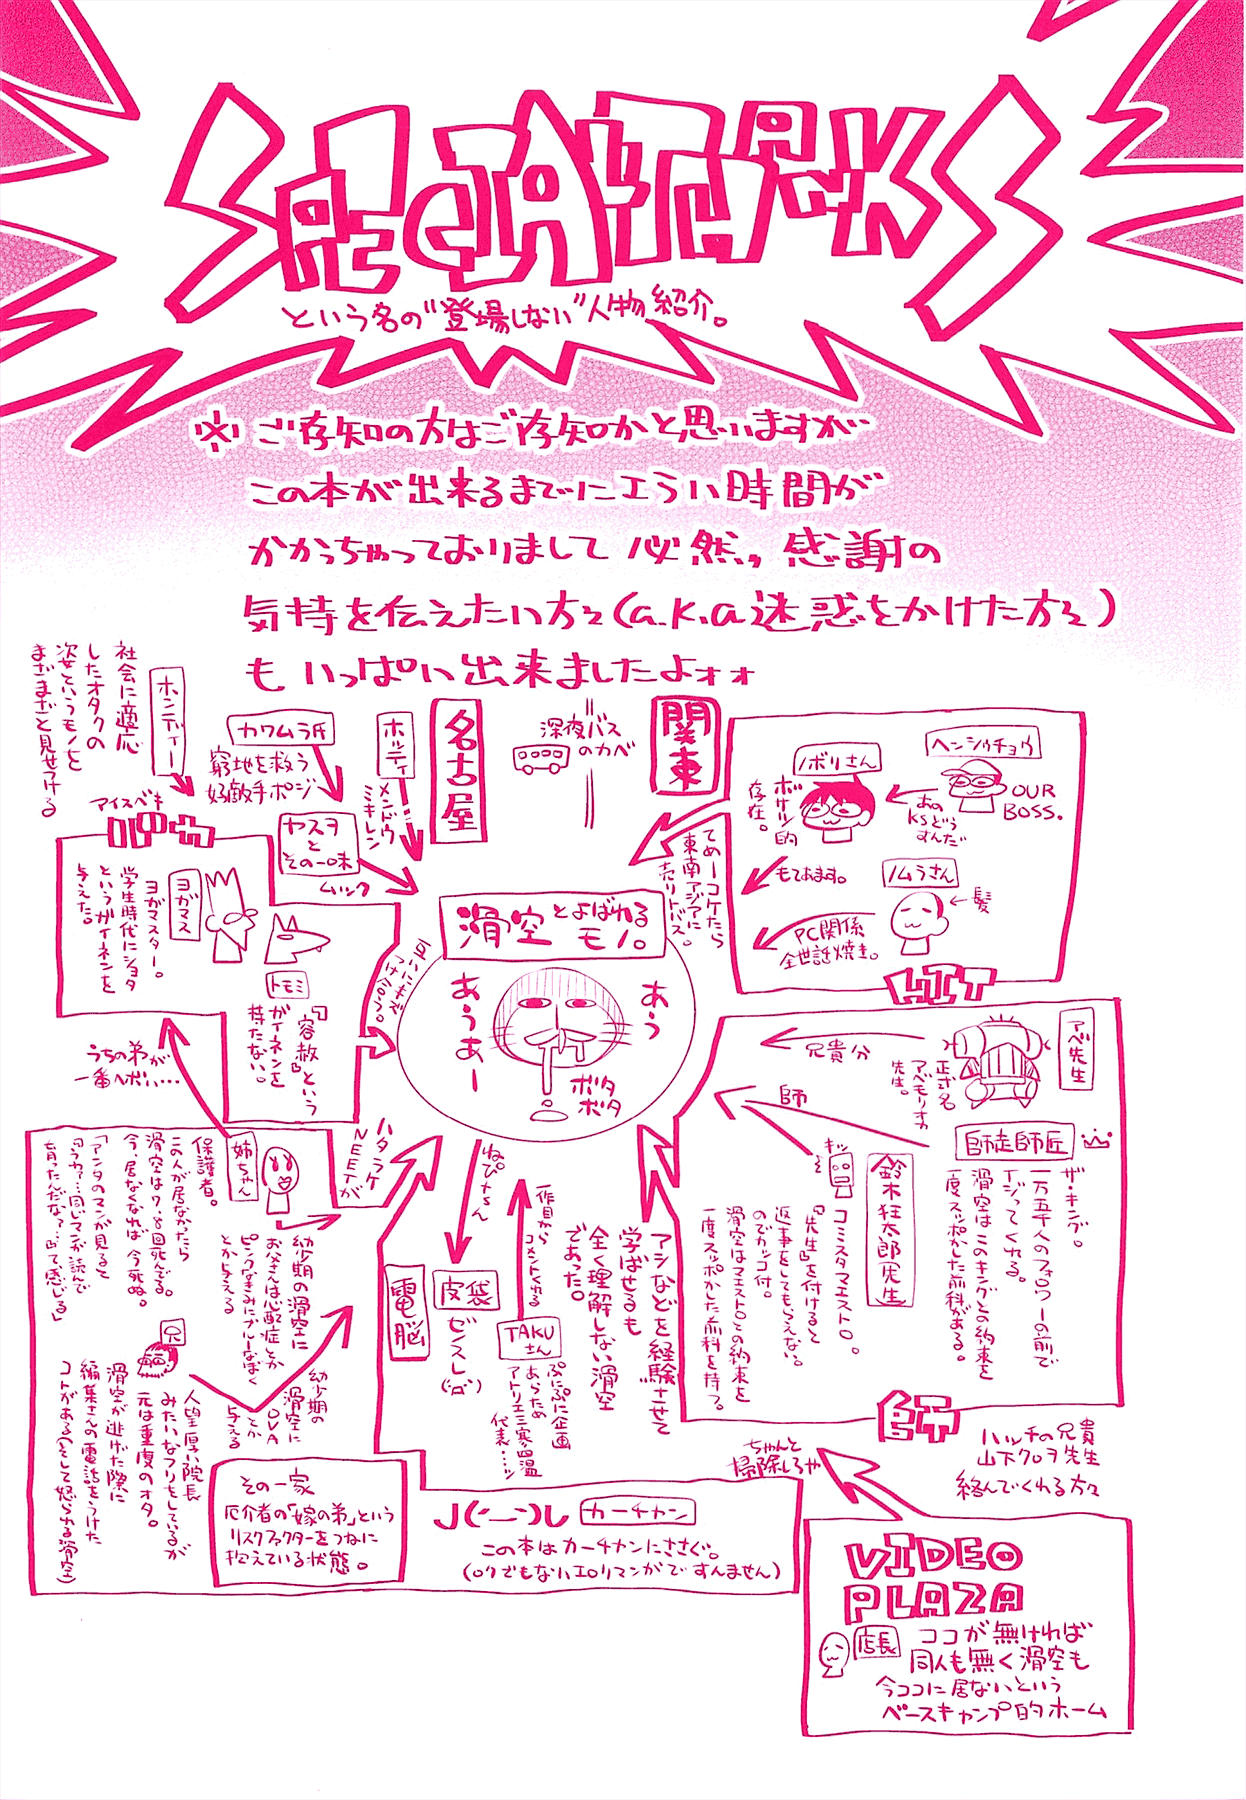 SPECIAL THANKS
という名の"登場しない"人物紹介。
※ご存知の方はご存知かと思いますが
この本が出来るまでにエラい時間が
かかっちゃっておりまして必然、感謝の
気持を伝えたい方々(a.k.a迷惑をかけた方々)
もいっぱい出来ましたよォォ
関東
深夜バス
のカベ
名古屋
ヘンシュウチョウ
OUR
BOSS.
あの
KSどう
すんだ
ノボリさん
ボサツ的
存在。
もてあます。
ノムラさん
髪
PC関係
全世話焼き。
HIT
てめーコケたら
東南アジアに
売りトバス。
ホッティ
メンドウ
ミキレン
カワムラ氏
窮地を救う
好敵手ポジ
ヤスヲ
と
その一味
ムツク
ホンディー
社会に適応
したオタクの
姿というモノを
まざまざと見せつける
アイスベキ
ヨガマス
ヨガマスター。
学生時代にショタ
というガイネンを
与えた。
トモミ
「容赦」という
ガイネンを
持たない。
滑空とよばれる
モノ。
あう
あうあー
ボタ
ボタ
アベ先生
正式名
アベモリオカ
先生。
兄貴分
師
師走師匠
ザ・キング。
一万五千人のフォロワーの前で
イジってくれる。
滑空はこのキングとの約束を
一度スッポかした前科がある。
キッ
鈴木狂太郎先生
コミスタマエストロ。
『先生』を付けると
返事をしてもらえない。
のでカッコ付。
滑空はマエストロとの約束を
一度スッポかした前科を持つ。
師
ハッチの兄貴
山下クロヲ先生
絡んでくれる方々
アシなどを経験させて
学ばせるも
全く理解しない滑空
であった。
一作目から
コメントくれる
TAKU
さん
ぷにぷに企画
あらため
アトリエ三寒四温
代表…ッ
ねぴょん
皮袋
ゼンスレ
電脳
ハタラケ
NEETが
うちの弟が
一番ヘボい…
姉ちゃん
保護者。
この人が居なかったら
滑空は7、8回死んでる。
今、居なくなれば今死ぬ。
「アンタのマンガ見ると
『うわァ…同じマンガ読んで
育ったんだな?』って感じる」
幼少期の滑空に
お父さんは心配症とか
ピンクなきみにブルーなぼく
とか与える
兄
幼少期の
滑空に
OVA
とか
与える
人望厚い院長
みたいなフリをしているが
元は重度のオタ。
滑空が逃げた際に
編集さんの電話をうけた
コトがある(そして怒られる滑空)
その一家
厄介者の「嫁の弟」という
リスクファクターをつねに
抱えている状態。
J(´ー`)し カーチャン
この本はカーチャンにささぐ。
(ロクでもないエロマンガですんません)
ちゃんと
掃除しろや
VIDEO
PLAZA
店長
ココが無ければ
同人も無く滑空も
今ココに居ないという
ベースキャンプ的ホーム